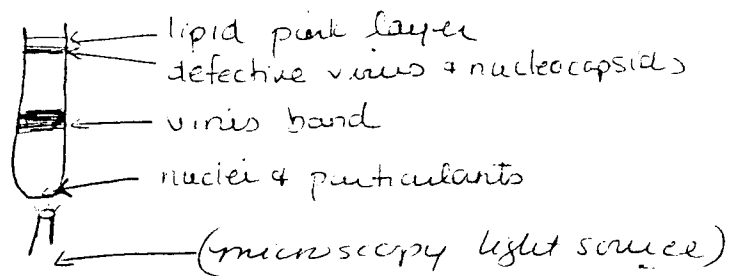 lipid pink layer
defective virus & nucleocapsids
virus band
nuclei & particulants
(microscopy light source)